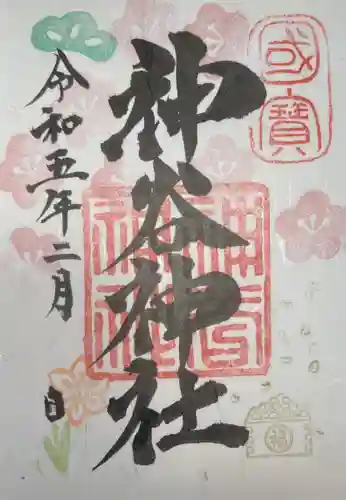 國寳
神谷神社
令和五年二月
日
神谷神社
福